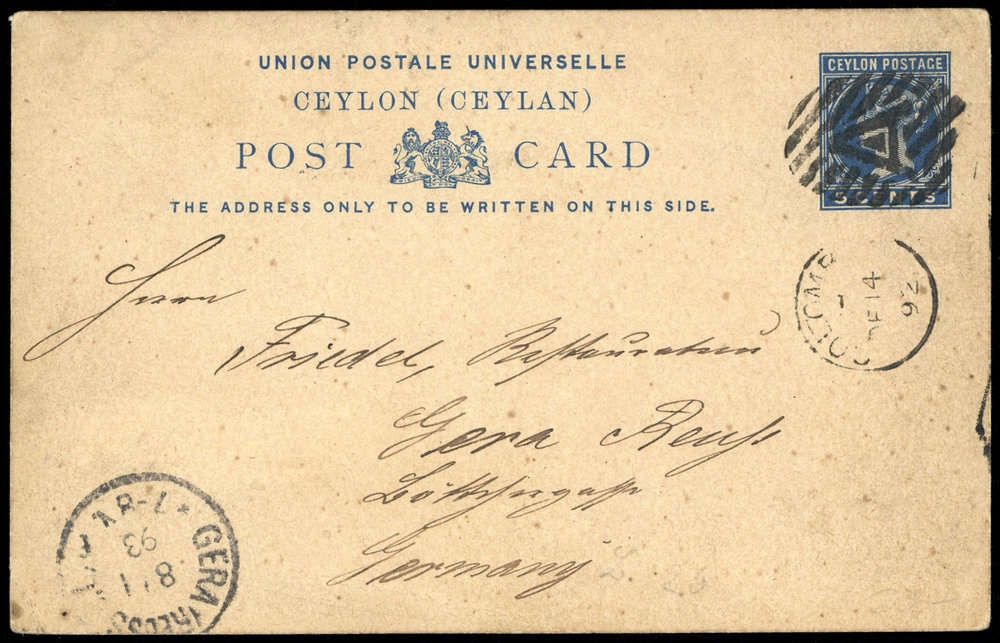 UNION POSTALE UNIVERSELLE
CEYLON (CEYLAN)
POST CARD
THE ADDRESS ONLY TO BE WRITTEN ON THIS SIDE.
CEYLON POSTAGE
5 CENTS
A
COLOMB
DE 14
92
Herrn
Friedel, Restaurateur
Gera Reuß
Böttchergasse
Germany
GERA (REUSS
8 1
93